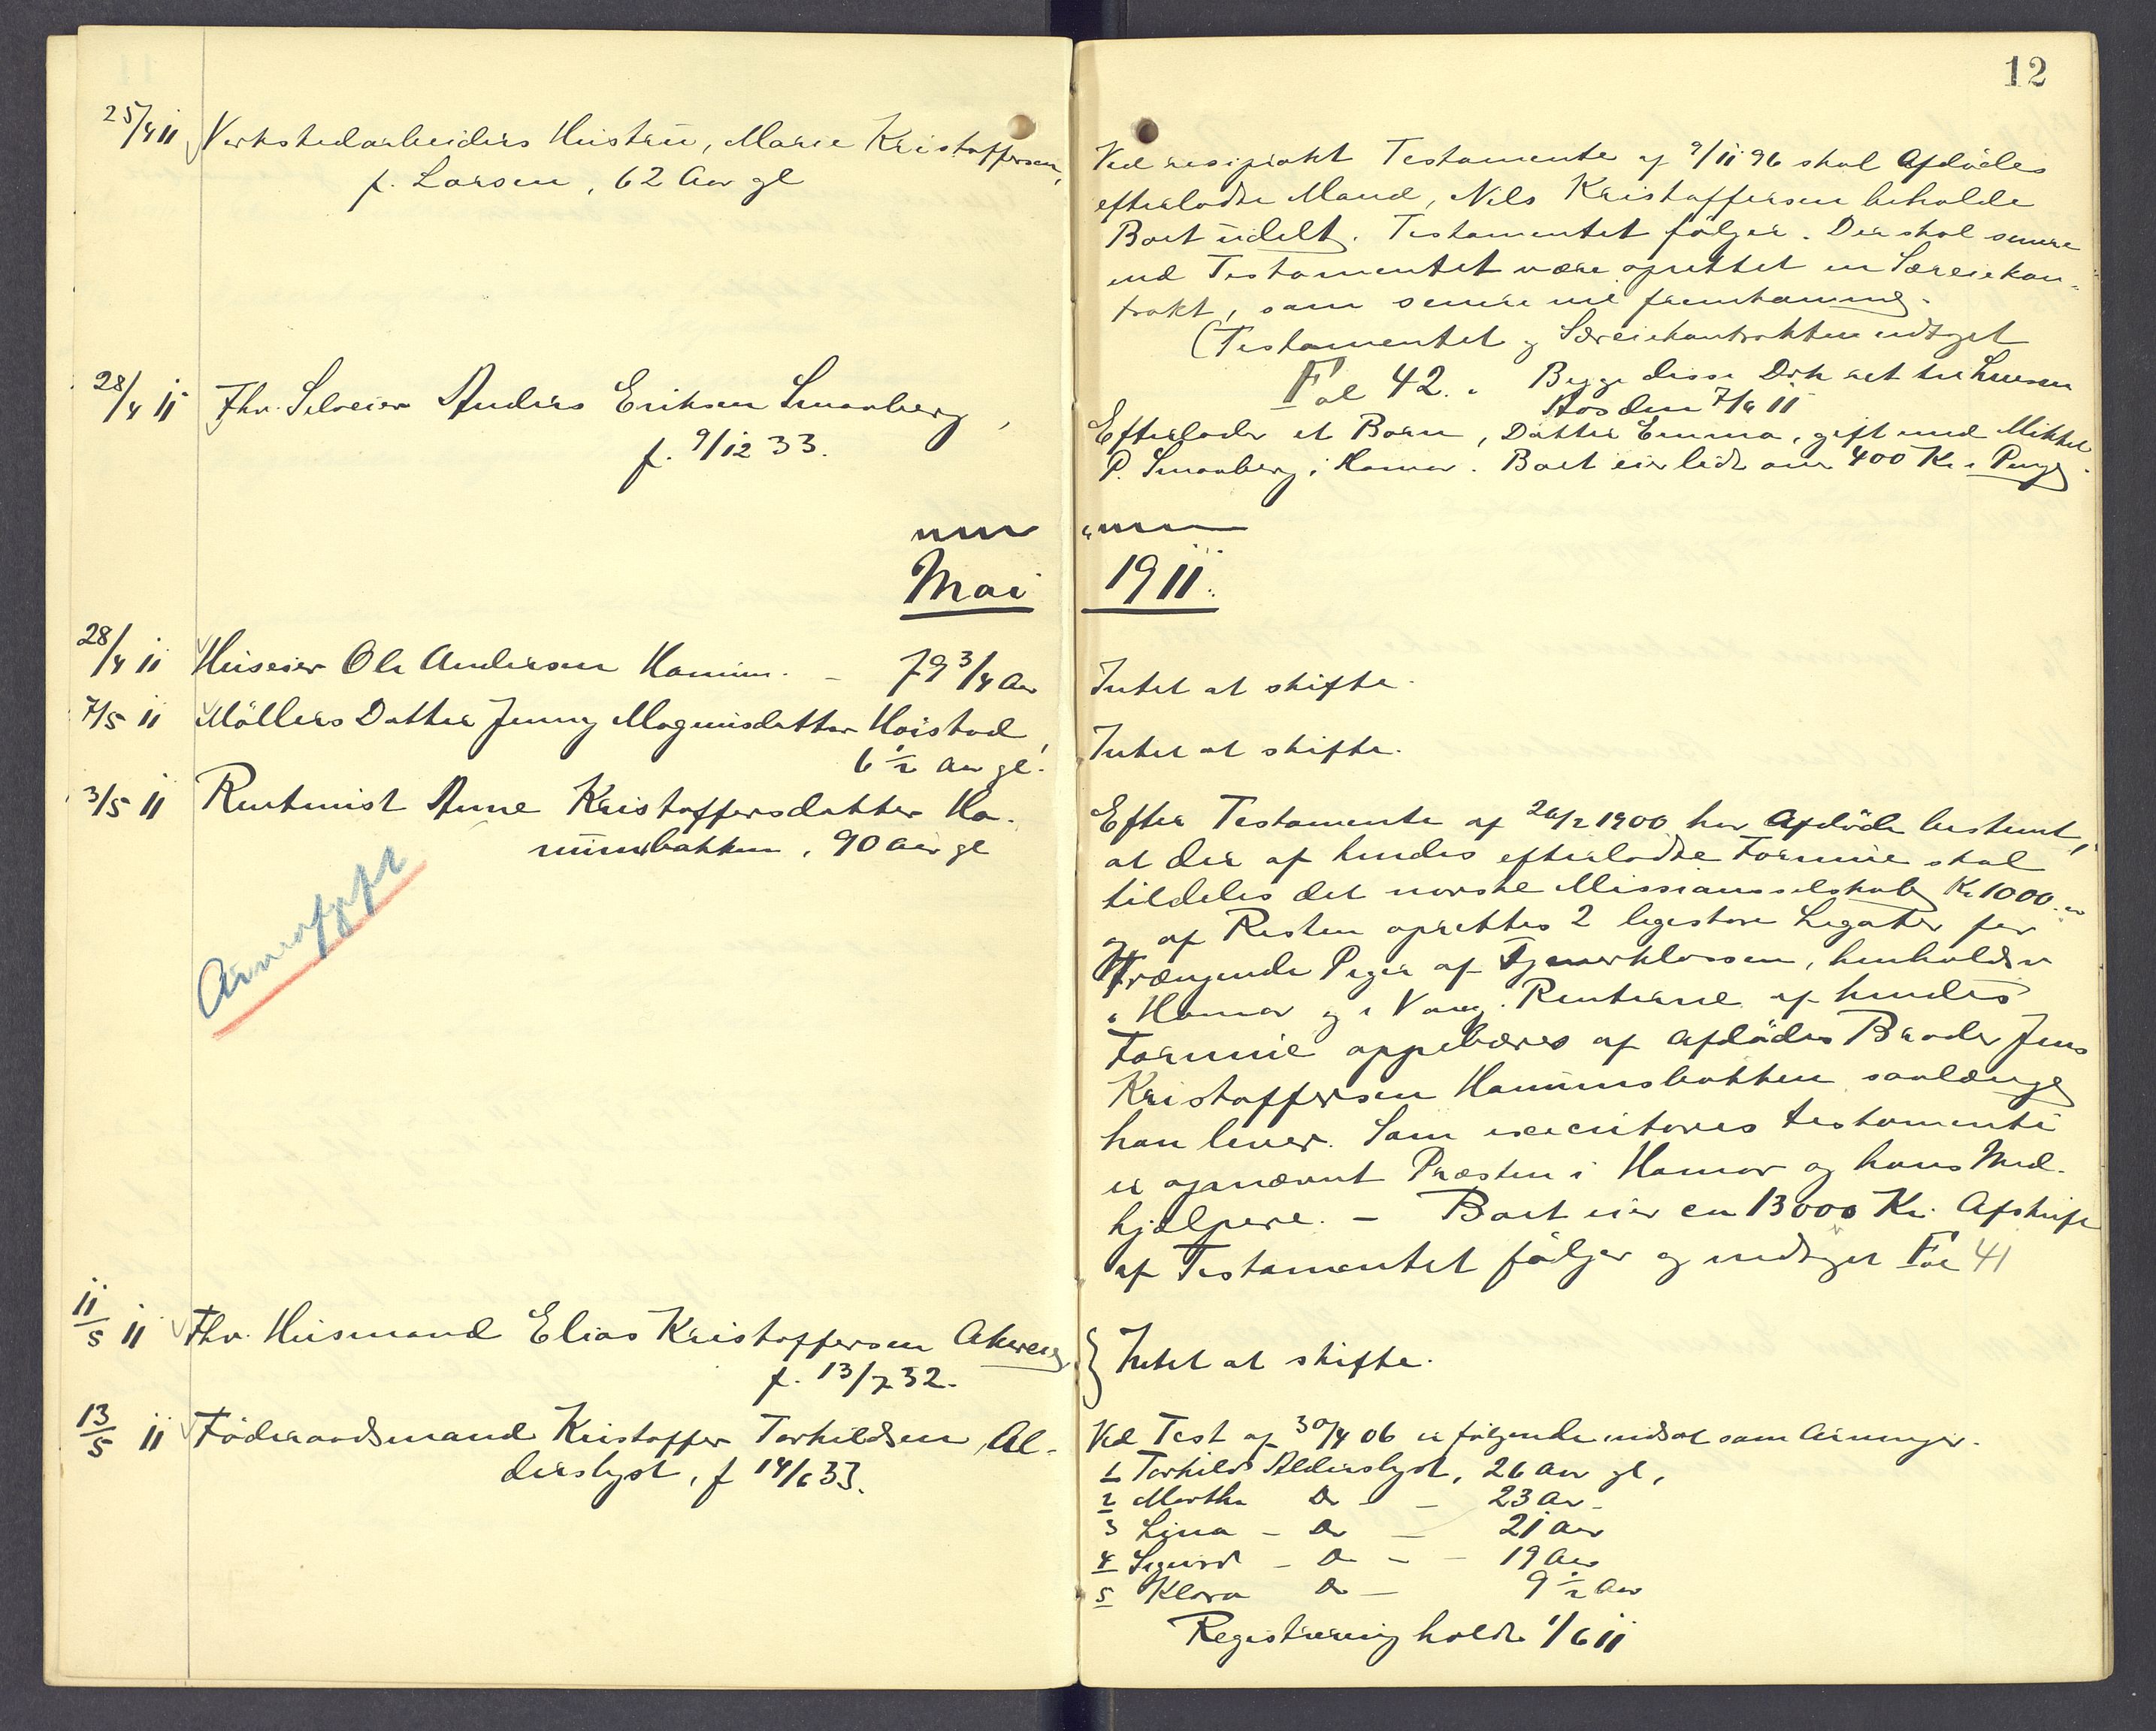 12
25/4 11 Verkstedarbeiders Hustru, Marie Kristoffersen,
f. Larsen, 62 Aar gl
Ved resiprokt Testamente af 9/11 96 skal Afdødes
efterladte Mand, Nils Kristoffersen beholde
Boet udelt. Testamentet følger. Der skal senere
end Testamentet være oprettet en Særeiekon-
trakt, som senere vil fremkomme.
(Testamentet og Særeiekontrakten indtaget
Fol 42. Begge disse
den 7/6 11
28/4 11 Fhv. Selveier Anders Eriksen Smaaberg,
f. 9/12 33.
Efterlader et Barn, Datter Emma, gift med Mikkel
P. Smaaberg i Hamar. Boet eier lidt over 400 Kr i Penge.
Mai 1911.
28/4 11 Huseier Ole Andersen Hamum. - 79 3/4 Aar
Intet at skifte.
7/5 11 Møllers Datter Jenny Magnusdatter Høistad,
6 1/2 Aar gl.
Intet at skifte.
3/5 11 Rentenist Anne Kristoffersdatter Ha-
mumsbakken, 90 Aar gl
Efter Testamente af 20/2 1900 har Afdøde bestemt,
at der af hendes efterladte Formue skal
tildeles det norske Missionsselskab Kr 1000.
og af Resten oprettes 2 ligestore Legater for
trængende Piger af Tjenerklassen, henholdsv
i Hamar og i Vang. Renterne af hendes
Formue oppebæres af Afdødes Broder Jens
Kristoffersen Hamumsbakken saalænge
han lever. Som executores testamenti
er opnævnt Præsten i Hamar og hans Med-
hjælpere. - Boet eier ca 13000 Kr. Afskrift
af Testamentet følger og indtaget Fol 41
11/5 11 Fhv. Husmand Elias Kristoffersen Akereie
f. 13/7 32.
} Intet at skifte.
13/5 11 Føderaadsmand Kristoffer Torkildsen Al-
derslyst, f 14/6 33.
Ved Test af 30/4 06 er følgende indsat som Arvinger.
1 Torkild Alderslyst, 26 Aar gl,
2 Marthe Do - 23 Aar -
3 Lina - Do - 21 Aar
4 Sigurd - Do - - 19 Aar
5 Klara Do - 9 1/2 Aar
Registrering holdt 1/6 11